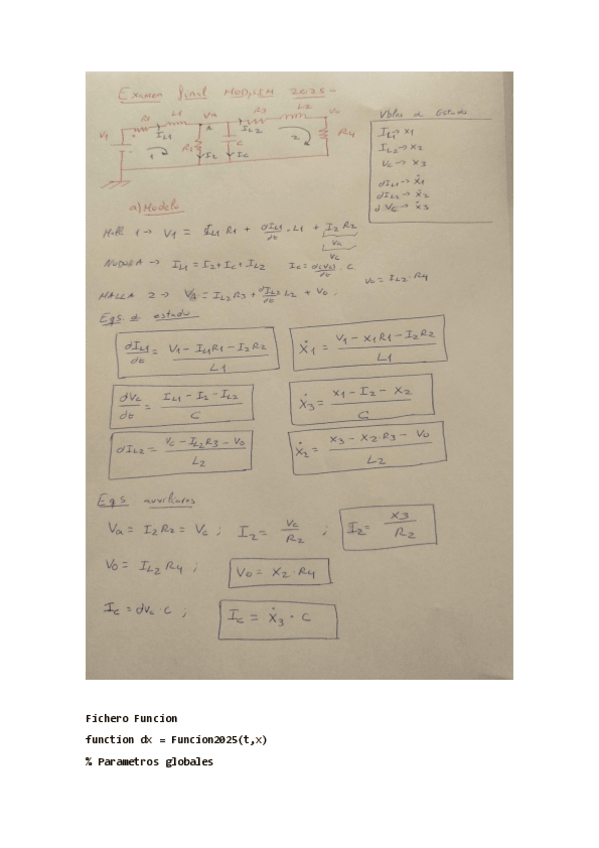 Examen final MODYSIM 2025-
R1 L1 Va R3 L2 Vo
V1 IL1 a IL2 R4
1 R2 C 2
I2 Ic
Vbles de Estado
IL1 → x1
IL2 → x2
Vc → x3
dIL1 → ẋ1
dIL2 → ẋ2
dVc → ẋ3
a) Modelo
Malla 1 → V1 = IL1 R1 + dIL1/dt · L1 + I2 R2
Va
Vc
NUDO A → IL1 = I2 + Ic + IL2 Ic = d(Vc)/dt · C
MALLA 2 → Va = IL2 R3 + dIL2/dt L2 + Vo ; Vo = IL2 · R4
Eqs de estado
dIL1/dt = V1 - IL1R1 - I2R2 / L1 ẋ1 = V1 - x1R1 - I2R2 / L1
dVc/dt = IL1 - I2 - IL2 / C ẋ3 = x1 - I2 - x2 / C
dIL2 = Vc - IL2R3 - Vo / L2 ẋ2 = x3 - x2·R3 - Vo / L2
Eqs auxiliares
Va = I2 R2 = Vc ; I2 = Vc / R2 ; I2 = x3 / R2
Vo = IL2 R4 ; Vo = x2 · R4
Ic = dVc · C ; Ic = ẋ3 · C
Fichero Funcion
function dx = Funcion2025(t,x)
% Parametros globales